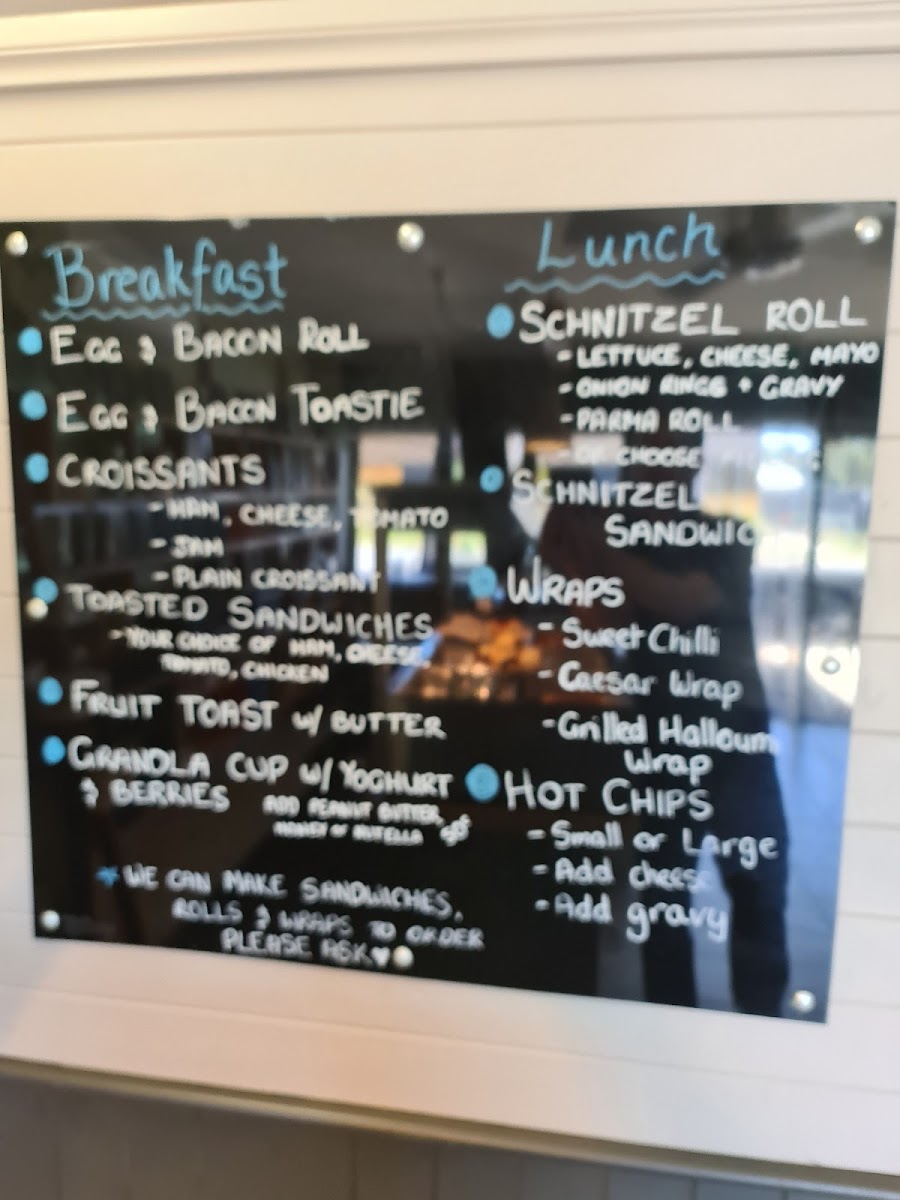 Breakfast
EGG & BACON ROLL
EGG & BACON TOASTIE
CROISSANTS
- HAM, CHEESE, TOMATO
- JAM
- PLAIN CROISSANT
TOASTED SANDWICHES
- YOUR CHOICE OF HAM, CHEESE,
TOMATO, CHICKEN
FRUIT TOAST w/ BUTTER
GRANOLA CUP w/ YOGHURT
& BERRIES
ADD PEANUT BUTTER,
HONEY or NUTELLA
* WE CAN MAKE SANDWICHES,
ROLLS & WRAPS TO ORDER
PLEASE ASK ♥
Lunch
SCHNITZEL ROLL
- LETTUCE, CHEESE, MAYO
- ONION RINGS + GRAVY
- PARMA ROLL
- OR CHOOSE
SCHNITZEL
WRAPS
- Sweet Chilli
- Caesar Wrap
- Grilled Halloumi
Wrap
HOT CHIPS
- Small or Large
- Add cheese
- Add gravy